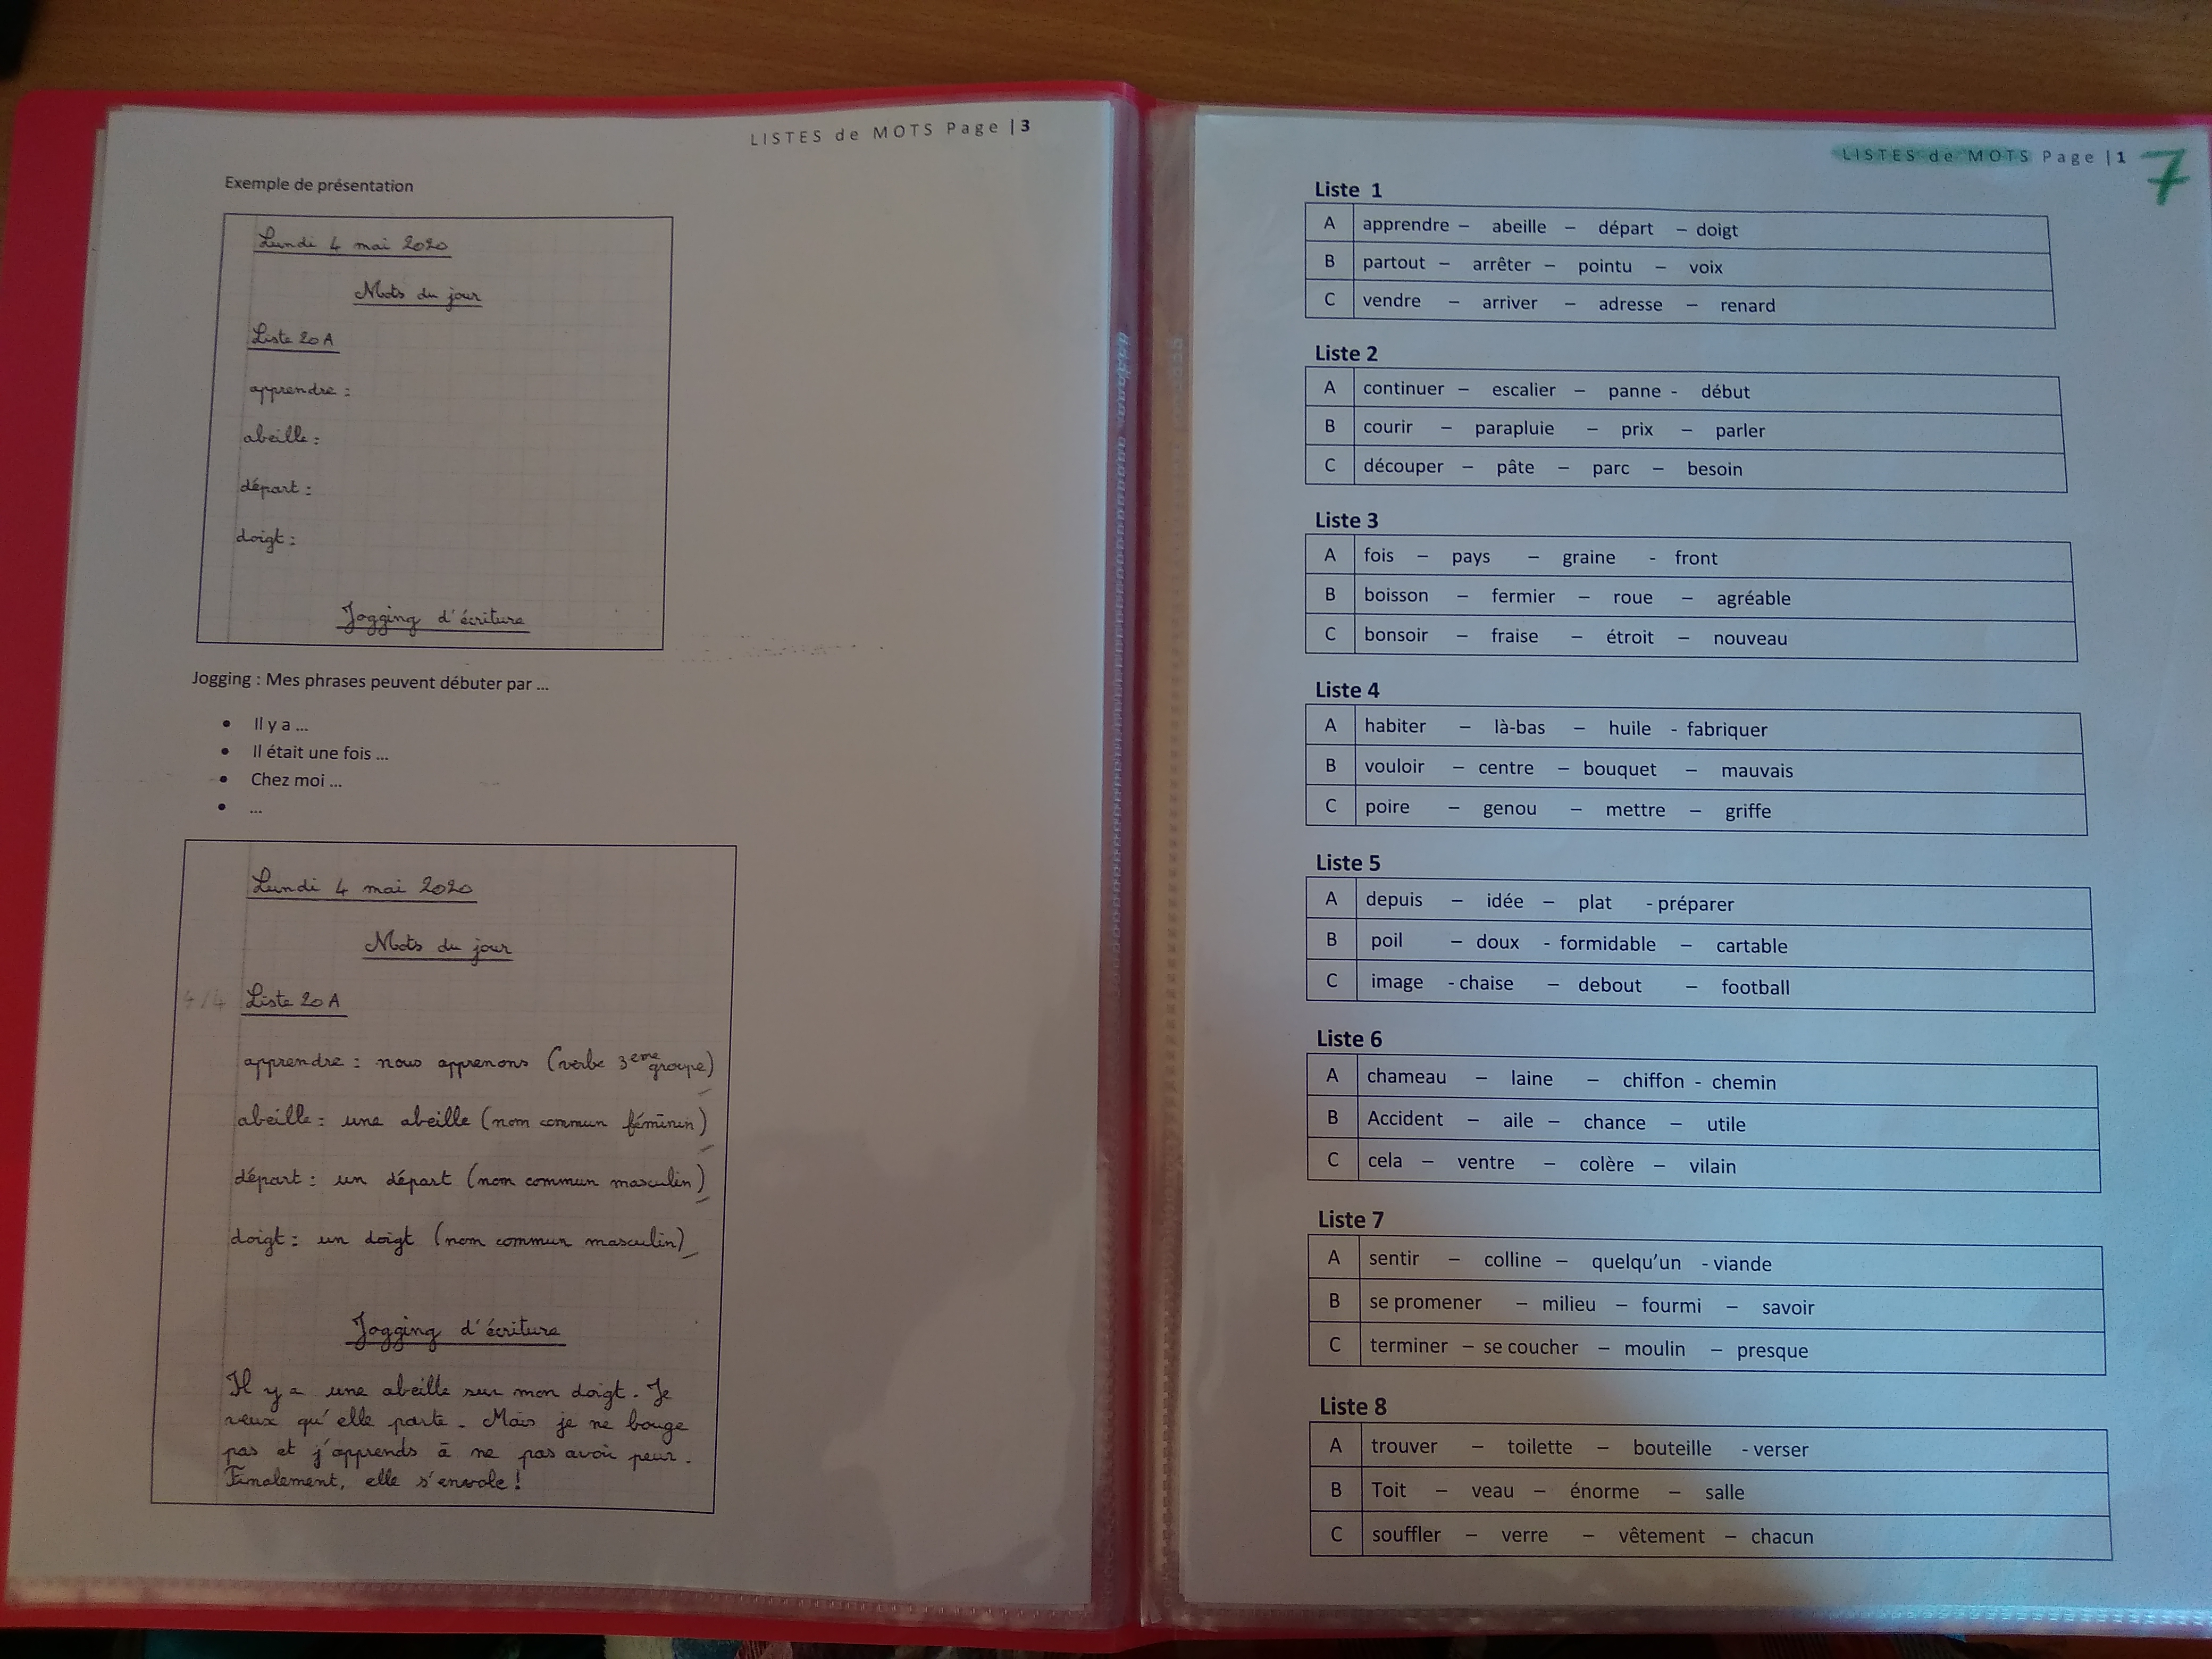 LISTES de MOTS Page | 3
Exemple de présentation
Lundi 4 mai 2020
Mots du jour
Liste 20 A
apprendre :
abeille :
départ :
doigt :
Jogging d'écriture
Jogging : Mes phrases peuvent débuter par ...
• Il y a ...
• Il était une fois ...
• Chez moi ...
• ...
Lundi 4 mai 2020
Mots du jour
4/4 Liste 20 A
apprendre : nous apprenons (verbe 3eme groupe)
abeille : une abeille (nom commun féminin)
départ : un départ (nom commun masculin)
doigt : un doigt (nom commun masculin)
Jogging d'écriture
Il y a une abeille sur mon doigt. Je
veux qu'elle parte. Mais je ne bouge
pas et j'apprends à ne pas avoir peur.
Finalement, elle s'envole !
LISTES de MOTS Page | 1 7
Liste 1
A apprendre – abeille – départ – doigt
B partout – arrêter – pointu – voix
C vendre – arriver – adresse – renard
Liste 2
A continuer – escalier – panne - début
B courir – parapluie – prix – parler
C découper – pâte – parc – besoin
Liste 3
A fois – pays – graine - front
B boisson – fermier – roue – agréable
C bonsoir – fraise – étroit – nouveau
Liste 4
A habiter – là-bas – huile - fabriquer
B vouloir – centre – bouquet – mauvais
C poire – genou – mettre – griffe
Liste 5
A depuis – idée – plat - préparer
B poil – doux - formidable – cartable
C image - chaise – debout – football
Liste 6
A chameau – laine – chiffon - chemin
B Accident – aile – chance – utile
C cela – ventre – colère – vilain
Liste 7
A sentir – colline – quelqu'un - viande
B se promener – milieu – fourmi – savoir
C terminer – se coucher – moulin – presque
Liste 8
A trouver – toilette – bouteille - verser
B Toit – veau – énorme – salle
C souffler – verre – vêtement – chacun